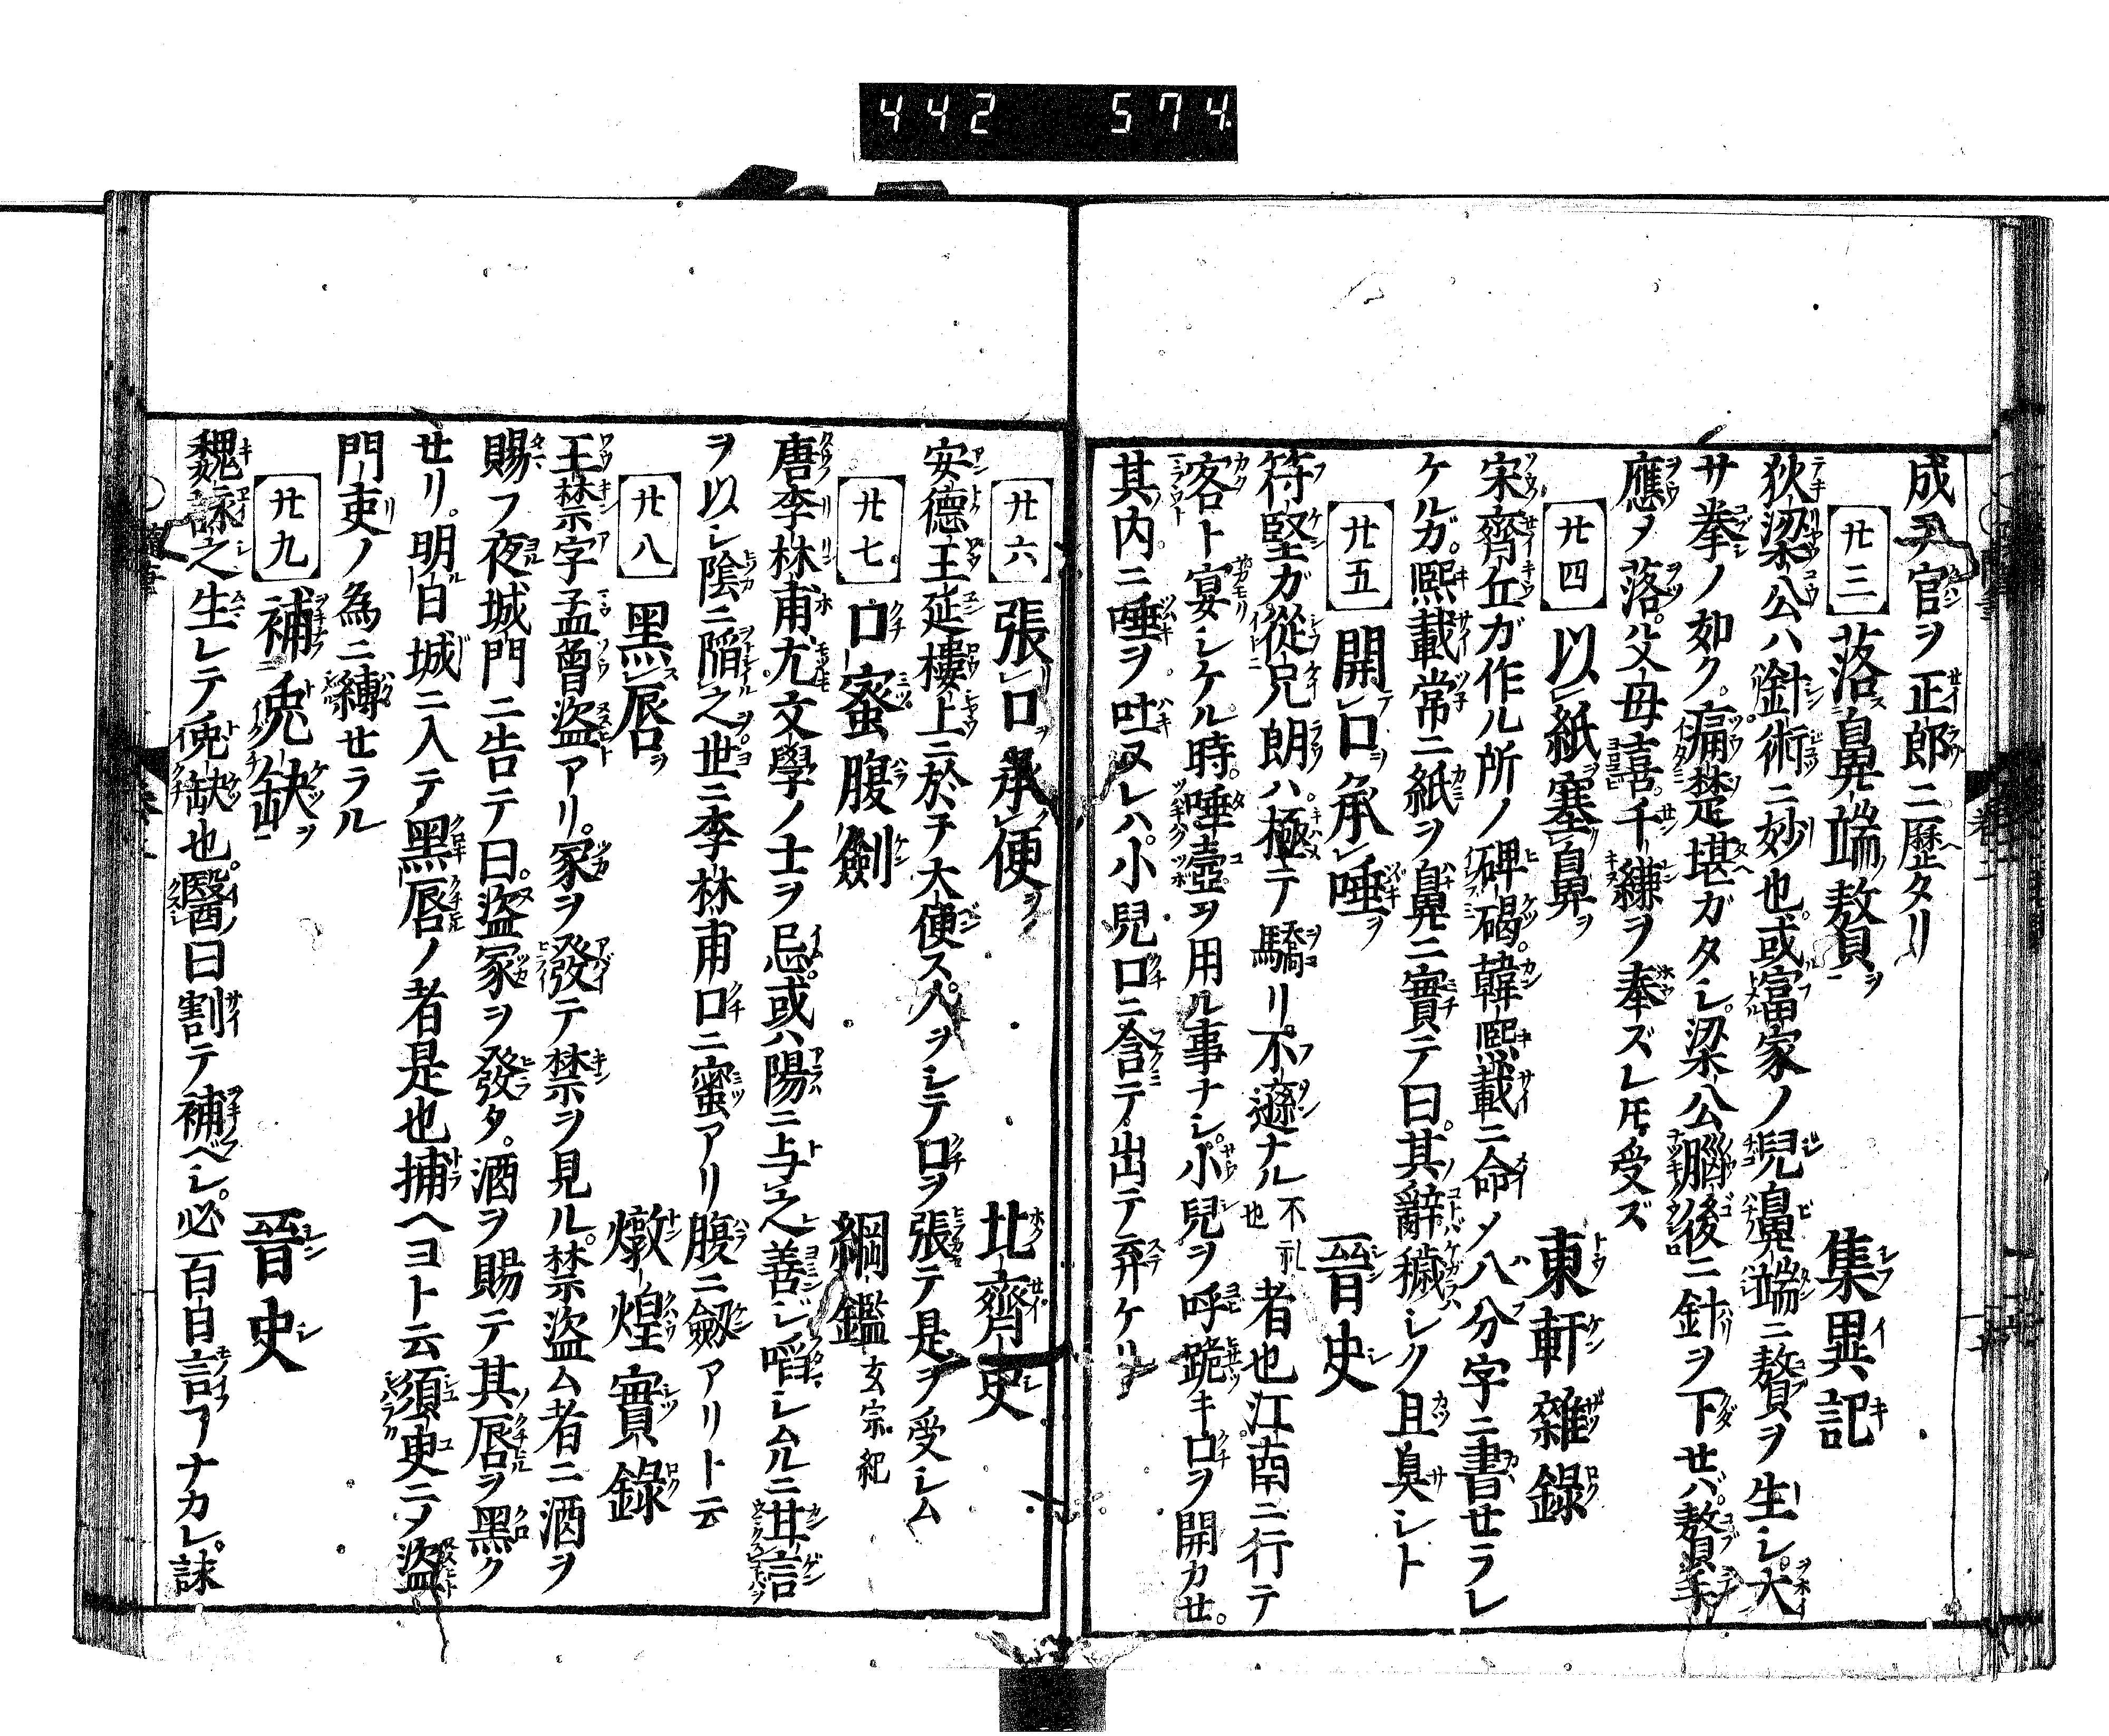 442 574
成ヲ官ヲ正郎ニ歴タリ
廿三 落鼻端贅ヲ 集異記
狄梁公ハ針術ニ妙也或富家ノ兒鼻端ニ贅ヲ生シ大
サ拳ノ如ク痛楚堪ガタシ梁公腦後ニ針ヲ下セバ贅手
應ヲ落父母喜千縑ヲ奉ズレ𪜈受ズ
廿四 以紙塞鼻ヲ 東軒雜錄
宋齊丘ガ作ル所ノ碑碣韓熙載ニ命メ八分字ニ書セラレ
ケルガ熙載常ニ紙ヲ鼻ニ實テ曰其辭穢シク且臭シト
廿五 開口承唾ヲ 晉史
符堅ガ從兄朗ハ極テ驕リ不遜ナル不礼也者也江南ニ行テ
客ト宴シケル時唾壺ヲ用ル事ナシ小兒ヲ呼跪キ口ヲ開カセ
其内ニ唾ヲ吐ヌレハ小兒口ニ含テ出テ弃ケリ
廿六 張口承便ヲ 北齊史
安德王延樓上ニ於テ大便ス人ヲシテ口ヲ張テ是ヲ受シム
廿七 口蜜腹劍 綱鑑 玄宗紀
唐李林甫尤文學ノ士ヲ忌或ハ陽ニ与之善ジ啗シムルニ甘言
ヲ以シ陰ニ陷之世ニ李林甫口ニ蜜アリ腹ニ劔アリト云
廿八 黑唇ヲ 燉煌實錄
王禁字孟曾盜アリ冢ヲ發テ禁ヲ見ル禁盜ム者ニ酒ヲ
賜フ夜城門ニ告テ曰盜冢ヲ發タ酒ヲ賜テ其唇ヲ黑ク
セリ明白城ニ入テ黑唇ノ者是也捕ヘヨト云須臾ニメ盜
門吏ノ為ニ縛セラル
廿九 補兔缺ヲ 晉史
魏詠之生レテ兔缺也醫曰割テ補ベシ必百白言フナカレ詠